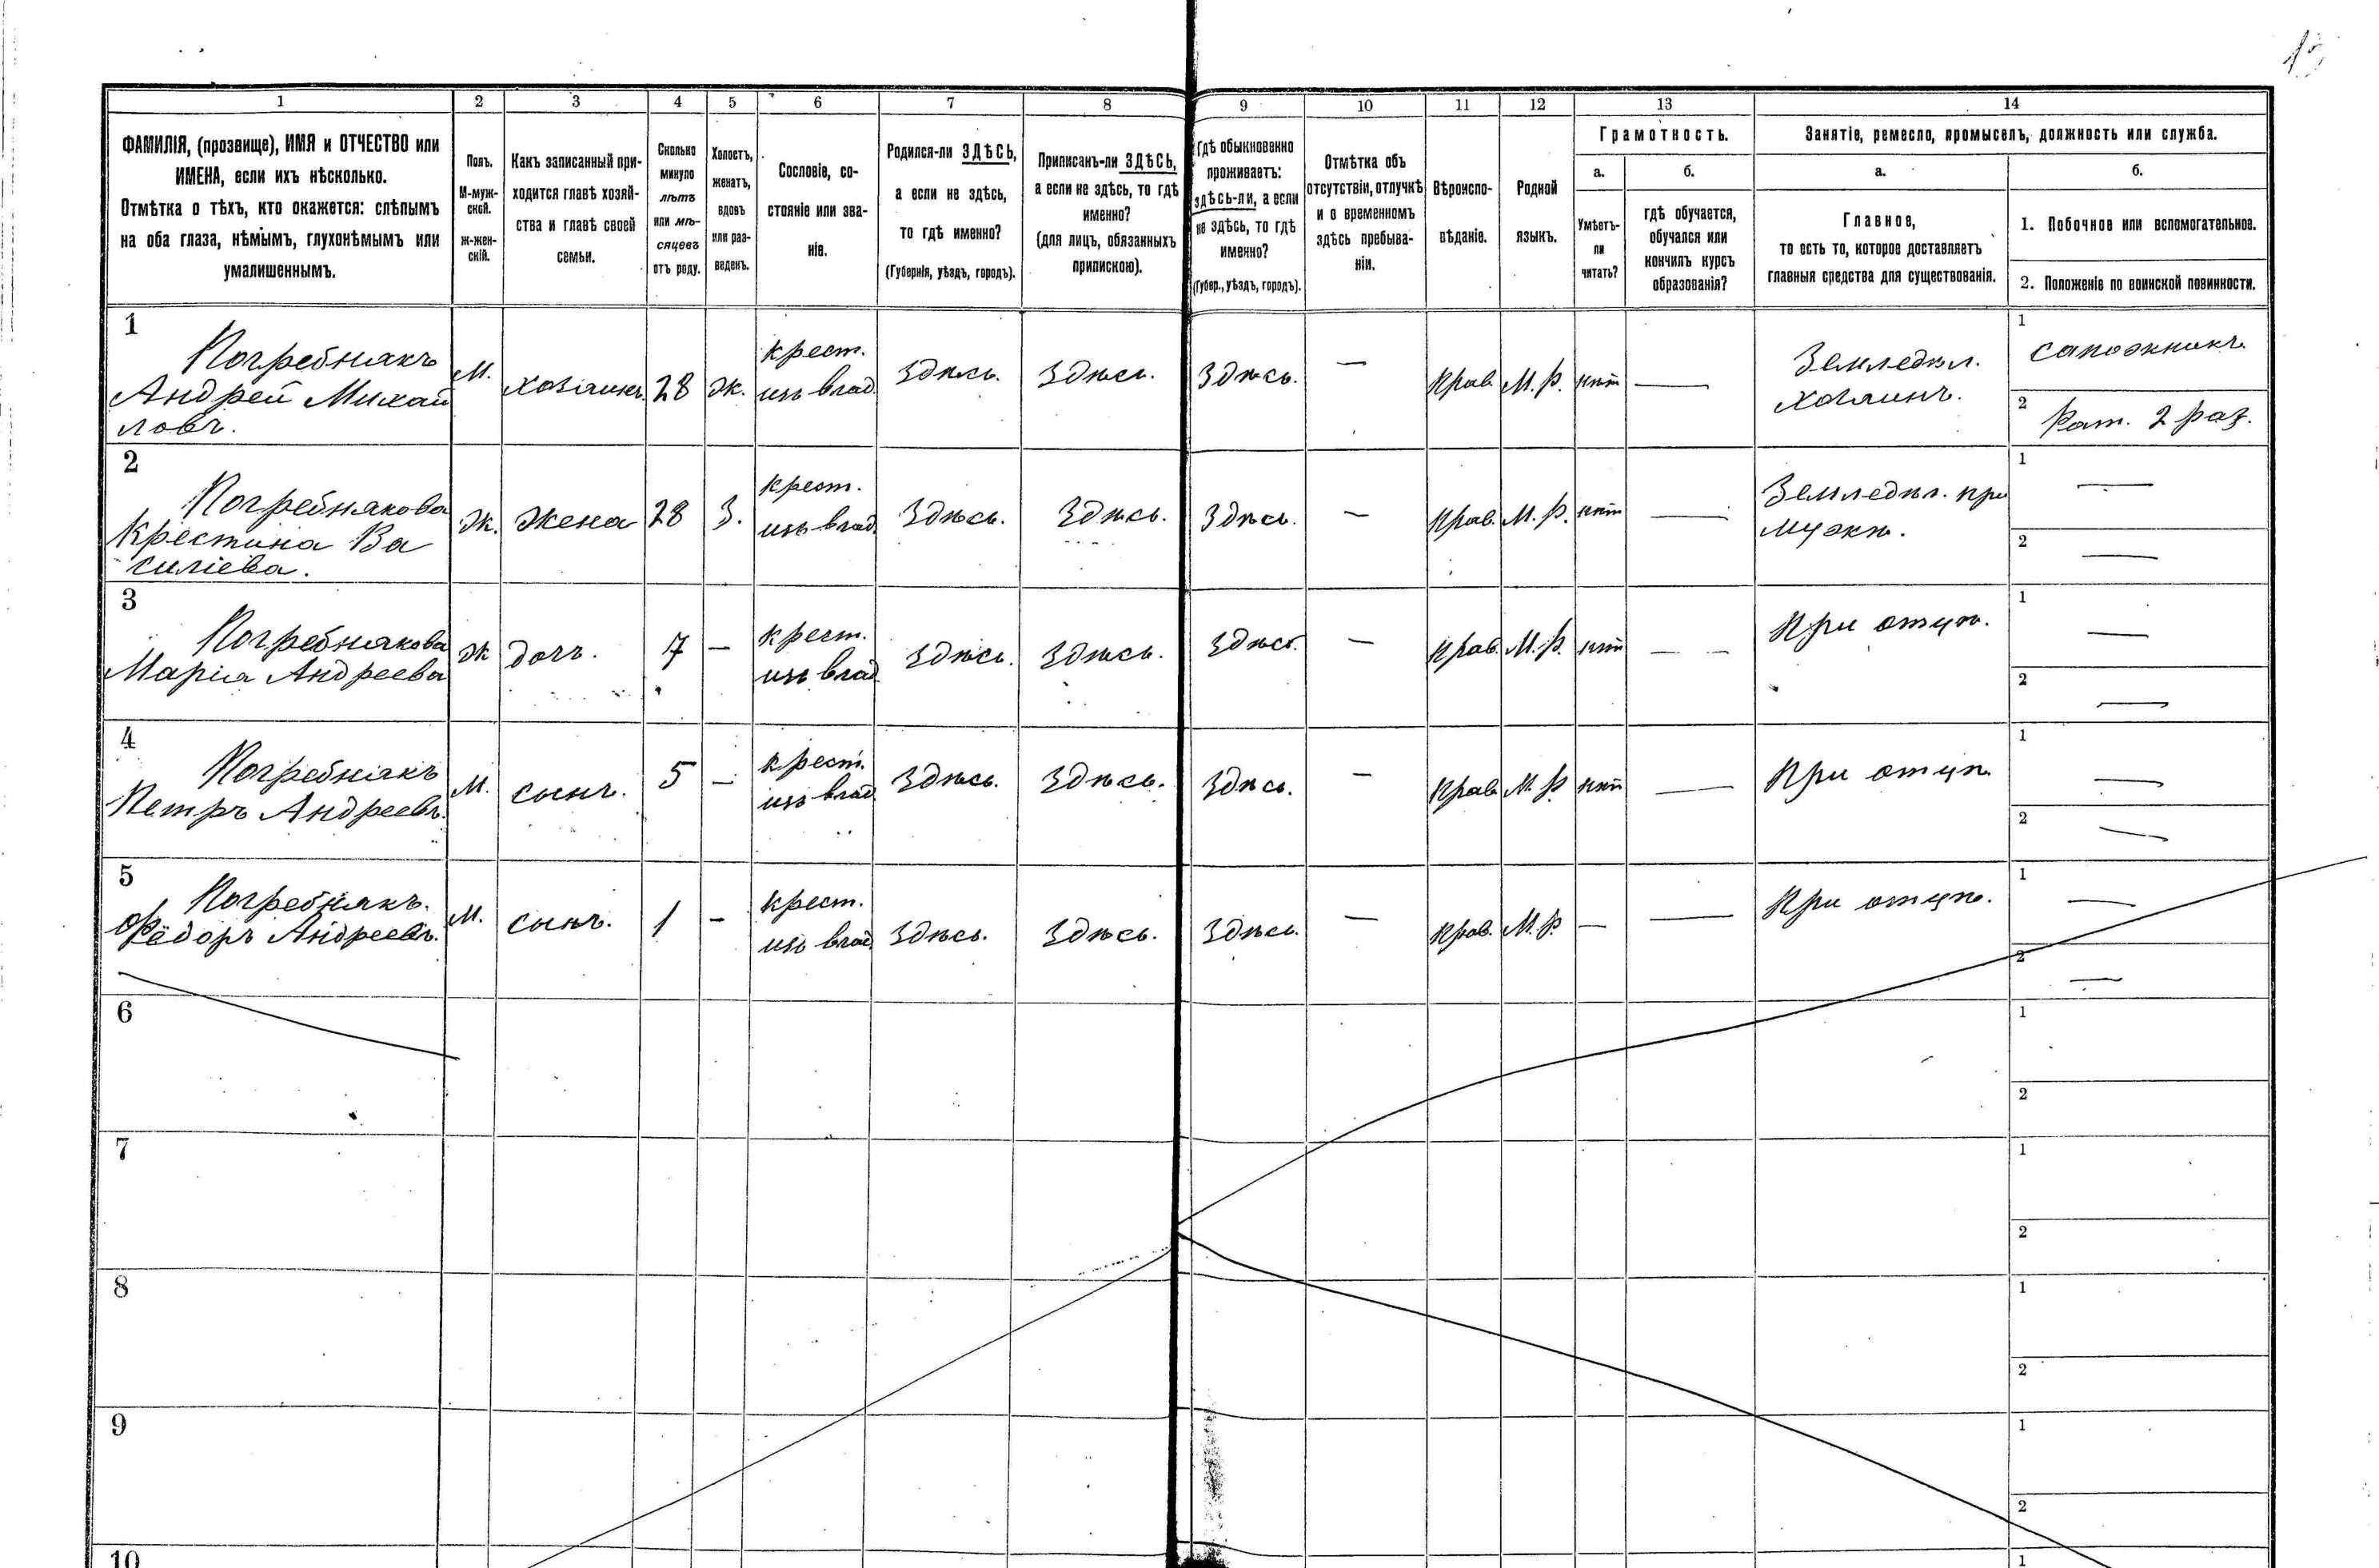 1 2 3 4 5 6 7 8 9 10 11 12 13 14
ФАМИЛІЯ, (прозвище), ИМЯ и ОТЧЕСТВО или
ИМЕНА, если ихъ нѣсколько.
Отмѣтка о тѣхъ, кто окажется: слѣпымъ
на оба глаза, нѣмымъ, глухонѣмымъ или
умалишеннымъ.
Полъ.
М-муж-
ской.
Ж-жен-
скій.
Какъ записанный при-
ходится главѣ хозяй-
ства и главѣ своей
семьи.
Сколько
минуло
лѣтъ
или мѣ-
сяцевъ
отъ роду.
Холостъ,
женатъ,
вдовъ
или раз-
веденъ.
Сословіе, со-
стояніе или зва-
ніе.
Родился-ли ЗДѢСЬ,
а если не здѣсь,
то гдѣ именно?
(Губернія, уѣздъ, городъ).
Приписанъ-ли ЗДѢСЬ,
а если не здѣсь, то гдѣ
именно?
(для лицъ, обязанныхъ
припискою).
Гдѣ обыкновенно
проживаетъ:
здѣсь-ли, а если
не здѣсь, то гдѣ
именно?
(Губер., уѣздъ, городъ).
Отмѣтка объ
отсутствіи, отлучкѣ
и о временномъ
здѣсь пребыва-
ніи.
Вѣроиспо-
вѣданіе.
Родной
языкъ.
Грамотность.
а.
Умѣетъ-
ли
читать?
б.
гдѣ обучается,
обучался или
кончилъ курсъ
образованія?
Занятіе, ремесло, промыселъ, должность или служба.
а.
Главное,
то есть то, которое доставляетъ
главныя средства для существованія.
б.
1. Побочное или вспомогательное.
2. Положеніе по воинской повинности.
1
Погребнякъ
Андрей Михай
ловъ.
М.
хозяинъ
28
ж.
крест.
изъ влад.
Здѣсь.
Здѣсь.
Здѣсь.
—
Прав.
М. Р.
нѣт
—
Земледѣл.
хозяинъ.
1
сапожникъ.
2
Рат. 2 раз.
2
Погребнякова
Крестина Ва
силіева.
Ж.
жена
28
З.
крест.
изъ влад.
Здѣсь.
Здѣсь.
Здѣсь.
—
Прав.
М. Р.
нѣт
—
Земледѣл. при
мужѣ.
1
—
2
—
3
Погребнякова
Марія Андреева
Ж
дочь.
7
—
крест.
изъ влад
Здѣсь.
Здѣсь.
Здѣсь.
—
Прав.
М. Р.
нѣт
— —
При отцѣ.
1
—
2
—
4
Погребнякъ
Петръ Андреевъ.
М.
сынъ.
5
—
крест.
изъ влад.
Здѣсь.
Здѣсь.
Здѣсь.
—
Прав
М. Р.
нѣт
—
При отцѣ.
1
—
2
—
5
Погребнякъ.
Фёдоръ Андреевъ.
М.
сынъ.
1
—
крест.
изъ влад.
Здѣсь.
Здѣсь.
Здѣсь.
—
Прав.
М. Р
—
—
При отцѣ.
1
—
2
—
6
1
2
7
1
2
8
1
2
9
1
2
10
1